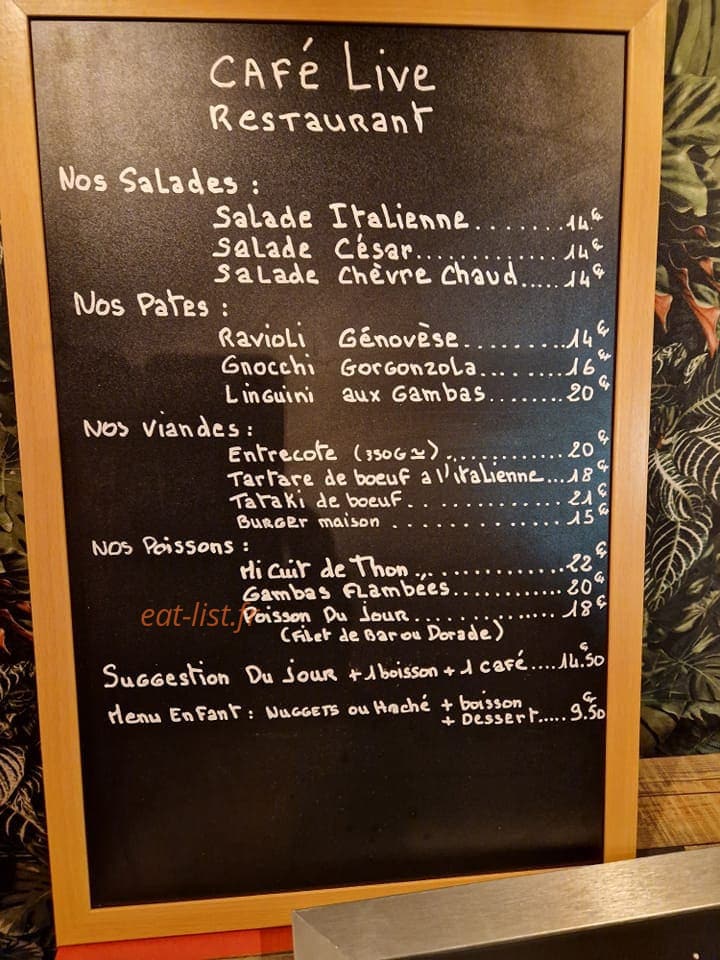 CAFé Live
Restaurant
Nos Salades :
Salade Italienne.......14€
Salade César..............14€
Salade Chèvre Chaud.....14€
Nos Pates :
Ravioli Génovèse.........14€
Gnocchi Gorgonzola.......16€
Linguini aux Gambas........20€
Nos viandes :
Entrecote (350G≃)............20€
Tartare de boeuf a l'italienne...18€
Tataki de boeuf..............21€
Burger maison ..............15€
Nos Poissons :
Mi Cuit de Thon ..............22€
Gambas Flambées............20€
Poisson Du Jour..............18€
eat-list.fr
(Filet de Bar ou Dorade)
Suggestion Du jour + 1 boisson + 1 café....14.50€
Menu Enfant : Nuggets ou Haché + boisson
+ Dessert.....9.50€